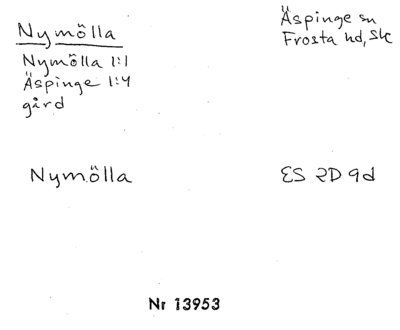 Nymölla
Nymölla 1:1
Äspinge 1:4
gård
Äspinge sn
Frosta hd, Sk
Nymölla
ES 2D 9d
Nr 13953